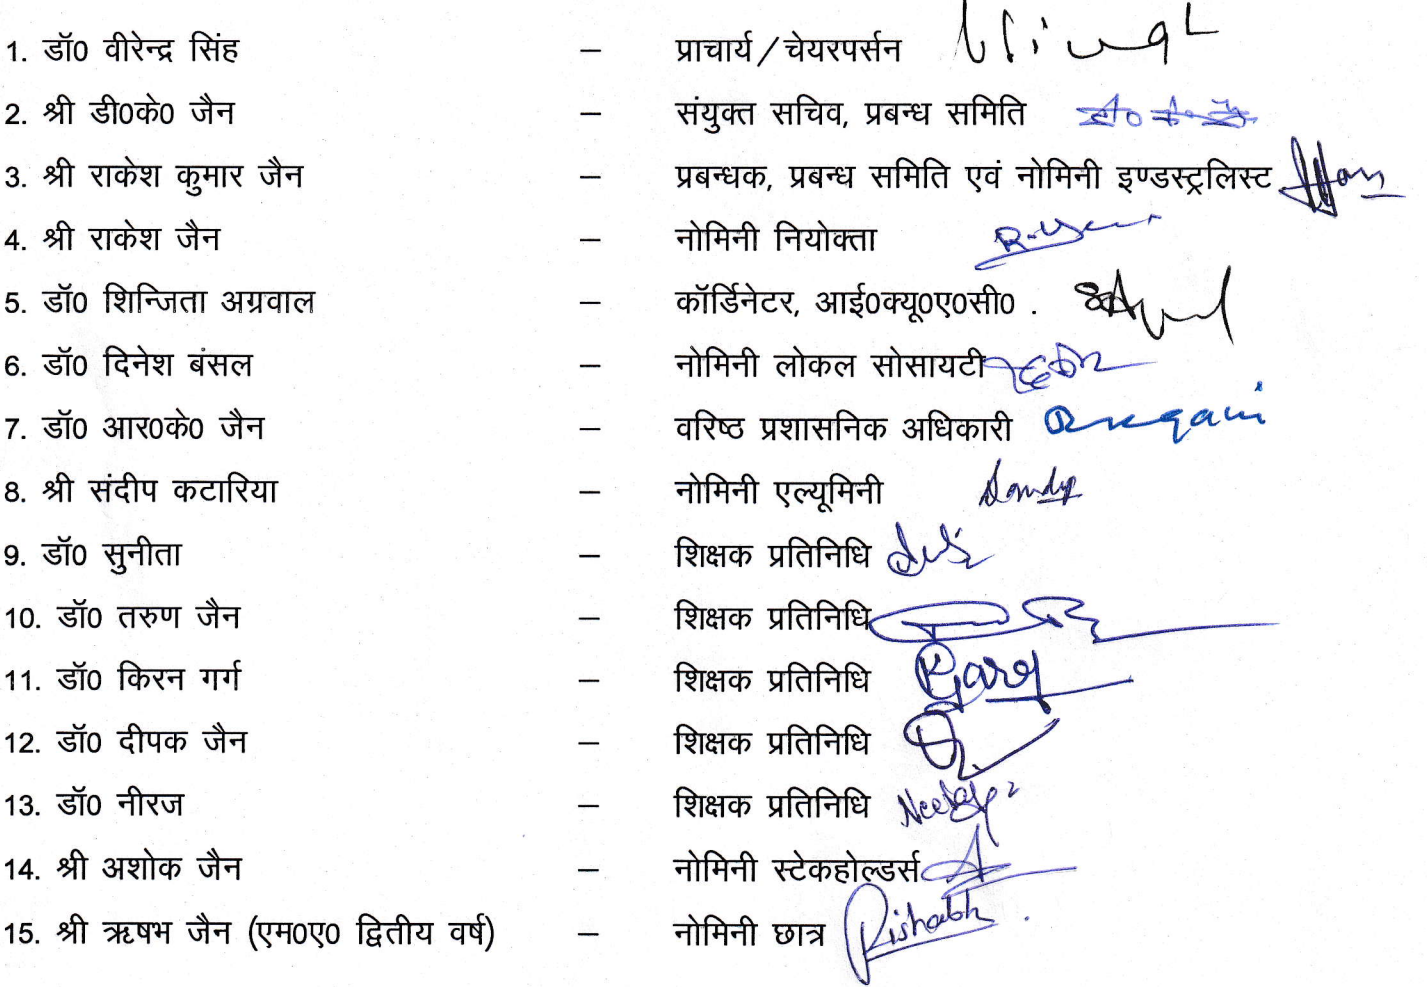 1. डॉ0 वीरेन्द्र सिंह – प्राचार्य/चेयरपर्सन
2. श्री डी0के0 जैन – संयुक्त सचिव, प्रबन्ध समिति
3. श्री राकेश कुमार जैन – प्रबन्धक, प्रबन्ध समिति एवं नोमिनी इण्डस्ट्रलिस्ट
4. श्री राकेश जैन – नोमिनी नियोक्ता
5. डॉ0 शिन्जिता अग्रवाल – कॉर्डिनेटर, आई0क्यू0ए0सी0 .
6. डॉ0 दिनेश बंसल – नोमिनी लोकल सोसायटी
7. डॉ0 आर0के0 जैन – वरिष्ठ प्रशासनिक अधिकारी
8. श्री संदीप कटारिया – नोमिनी एल्यूमिनी
9. डॉ0 सुनीता – शिक्षक प्रतिनिधि
10. डॉ0 तरुण जैन – शिक्षक प्रतिनिधि
11. डॉ0 किरन गर्ग – शिक्षक प्रतिनिधि Garg
12. डॉ0 दीपक जैन – शिक्षक प्रतिनिधि
13. डॉ0 नीरज – शिक्षक प्रतिनिधि
14. श्री अशोक जैन – नोमिनी स्टेकहोल्डर्स
15. श्री ऋषभ जैन (एम0ए0 द्वितीय वर्ष) – नोमिनी छात्र Rishabh